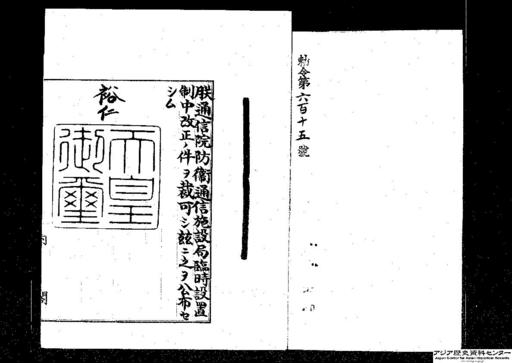 勅令第六百十五號
朕通信院防衛通信施設局臨時設置
制中改正ノ件ヲ裁可シ茲ニ之ヲ公布セ
シム
裕仁
天皇
御璽
内閣
アジア歴史資料センター
Japan Center for Asian Historical Records